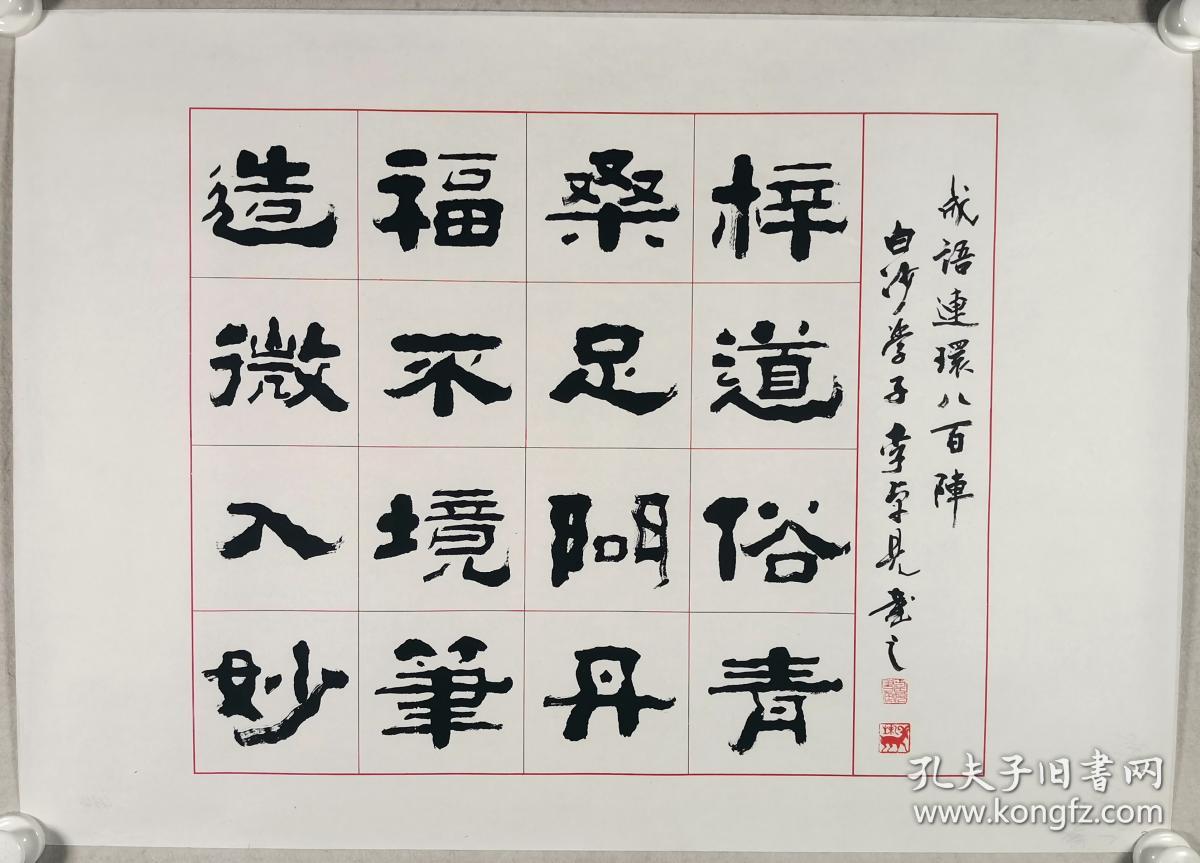 造福桑梓
微不足道
入境問俗
妙筆丹青
成語連環八百陣
白沙學子李卓見書之
孔夫子旧書网
www.kongfz.com